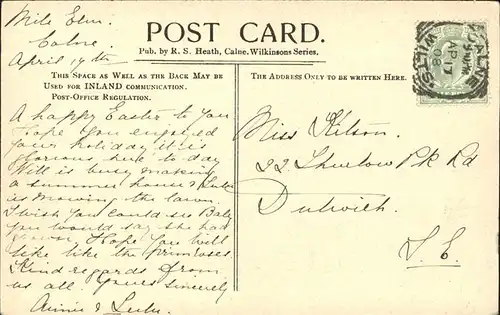 Mile Elm
Calne
April 17th
POST CARD.
Pub. by R. S. Heath, Calne. Wilkinsons Series.
THIS SPACE AS WELL AS THE BACK MAY BE
USED FOR INLAND COMMUNICATION.
POST-OFFICE REGULATION.
A happy Easter to you
Hope you enjoyed
your holiday it is
glorious here to day
Will is busy making
a summer house & Lulu
is mowing the lawn.
I wish you could see Baby
you would say she had
grown. Hope you will
like the primroses
Kind regards from
us all. Yours sincerely
Annie & Lulu
THE ADDRESS ONLY TO BE WRITTEN HERE.
Miss Kitson.
22 Thurlow Pk Rd
Dulwich.
S. E.
CALNE
AP 17
08
WILTS